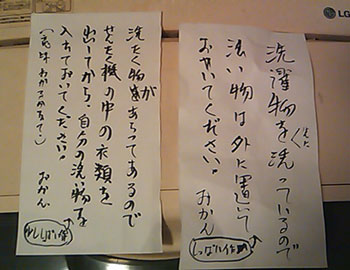 LG
洗濯物を洗っているので
洗い物は外に置いて
おいてください。
おかん
しっぱい作
洗たく物があらってあるので
せんたく機の中の衣類を
出してから、自分の洗い物を
入れておいてください!
おかん